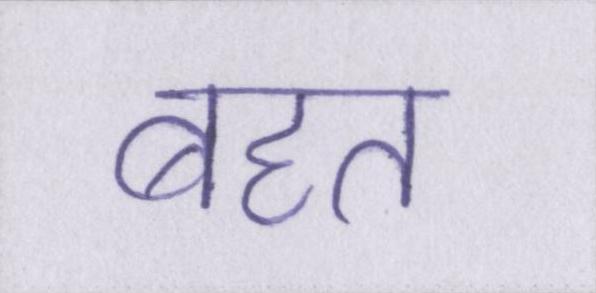 बहत